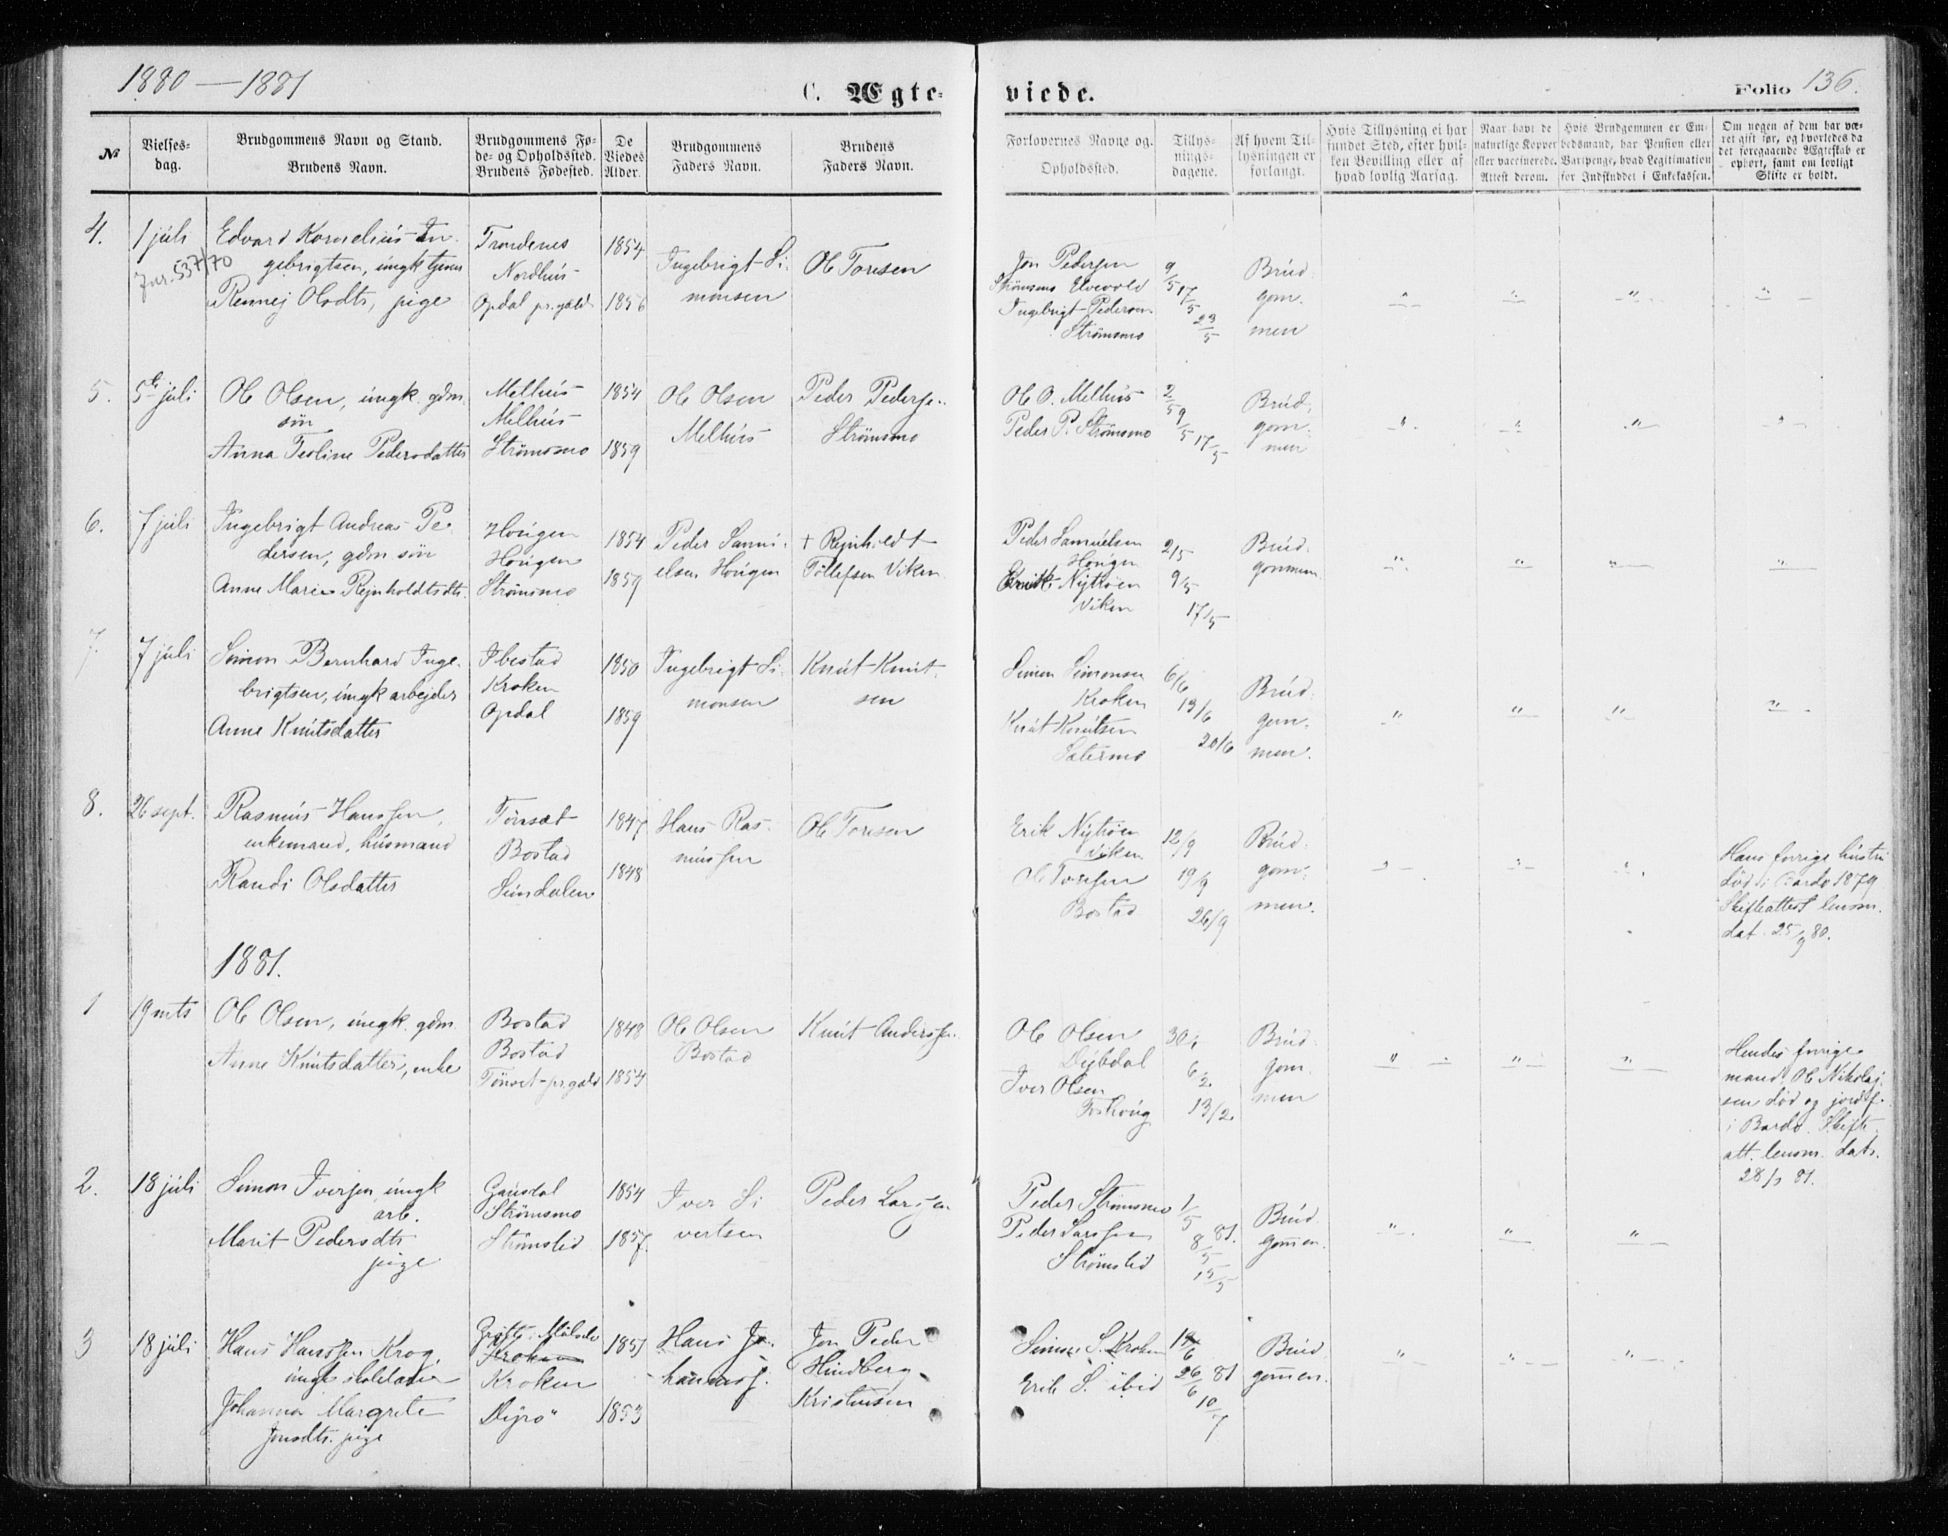 1880 — 1881
C. Ægte-
viede.
Folio 136.
№
Vielses-
dag.
Brudgommens Navn og Stand.
Brudens Navn.
Brudgommens Fø-
de- og Opholdssted.
Brudens Fødested.
De
Viedes
Alder.
Brudgommens
Faders Navn.
Brudens
Faders Navn.
Forlovernes Navne og
Opholdssted.
Tillys-
nings-
dagene.
Af hvem Til-
lysningen er
forlangt.
Hvis Tillysning ei har
fundet Sted, efter hvil-
len Bevilling eller af
hvad lovlig Aarsag.
Naar havt de
naturlige Kopper
eller vaccinerede.
Attest derom.
Hvis Brudgommen er Em-
bedsmand, har Pension eller
Vartpenge, hvad Legitimation
for Indskuddet i Enkekassen.
Om nogen af dem har væ-
ret gift før, og hvorledes da
det foregaaende Ægteskab er
ophørt, samt om lovligt
Skifte er holdt.
4.
1 juli
Jnr. 537/70
Edvard Kornelius In-
gebrigtsen, ungk tjener
Rennej Olsdtr, pige
Trondenes
Nordhus
Opdal pr.gjæld
1854
1856
Ingebrigt Si-
monsen
Ole Toresen
Jon Pedersen
Strømsmo Elvevold
Ingebrigt Pedersen
Strømsmo
9/5
17/5
23/5
Brud-
gom-
men
5.
5te juli
Ole Olsen, ungk. gdm.
søn
Anna Teoline Pedersdatter
Melhus
Melhus
Strømsmo
1854
1859
Ole Olsen
Melhus
Peder Pederse.
Strømsmo
Ole O. Melhus
Peder P. Strømsmo
2/5
9/5
17/5
Brud-
gom-
men
6.
7 juli
Ingebrigt Andreas Pe-
dersen, gdm søn
Anne Marie Rejnholdtsdtr.
Hougen
Hougen
Strømsmo
1854
1859
Peder Samu-
elsen Hougen
+ Rejnholdt
Tollefsen Viken
Peder Samuelsen
Hougen
Erik Nytrøen
Viken
2/5
9/5
17/5
Brud-
gommen
7.
7 juli
Simon Bernhard Inge-
brigtsen, ungk arbejder
Anne Knutsdatter
Ibestad
Kroken
Opdal
1850
1859
Ingebrigt Si-
monsen
Knut Knut-
sen
Simon Simonsen
Kroken
Knut Knutsen
Sætermo
6/6
13/6
20/6
Brud-
gom-
men.
8.
26 sept.
Rasmus Hanssen,
enkemand, husmand
Randi Olsdatter
Tønsæt
Bostad
Sundalen
1847
1848
Hans Ras-
mussen
Ole Toresen
Erik Nytrøen
Viken
Ole Toresen
Bostad
12/9
19/9
26/9
Brud-
gom-
men.
Hans forrige hustru
død i Bardo 1879
Skifteattest lensm.
dat. 25/9 80.
1881.
1
19 mts
Ole Olsen, ungk. gdm
Anne Knutsdatter, enke
Bostad
Bostad
Tønset pr.gjæld
1848
1854
Ole Olsen
Bostad
Knut Anderse.
Ole Olsen
Dybdal
Iver Olsen
Foshoug
30/1
6/2
13/2.
Brud-
gom-
men
Hendes forrige
mand, Ole Nikolaj-
sen død og jordf.
i Bardo. Skifte-
att. lensm. dat.
28/1 81.
2.
18 juli
Simon Iversen, ungk
arb.
Marit Pedersdtr
pige
Gausdal
Strømsmo
Strømslid
1854
1857.
Iver Si-
vertsen
Peder Larssen
Peder Strømsmo
Peder Larssen
Strømslid
1/5
8/5 81.
15/5
Brud-
gommen.
3
18 juli
Hans Hanssen Krog,
ungk skolelærer
Johanna Margrete
Jonsdtr. pige
Kroken
Kroken
Dyrø
1851
1853
Hans Jo-
hannes.
Jon Peder
Hindberg
Kristensen
Simon S. Kroken
Erik S. ibid
19/6
26/6 81
10/7
Brud-
gommen.